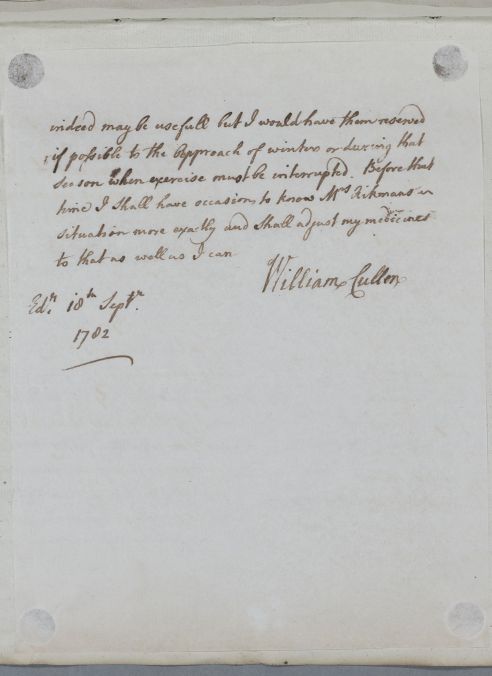 indeed may be usefull but I would have them reserved
if possible to the Approach of winter or during that
season when exercise must be interrupted. Before that
time I shall have occasion to know Mrs Kikman's
situation more exactly and shall adjust my medicines
to that as well as I can
William Cullen
Edr. 18th Septr.
1782